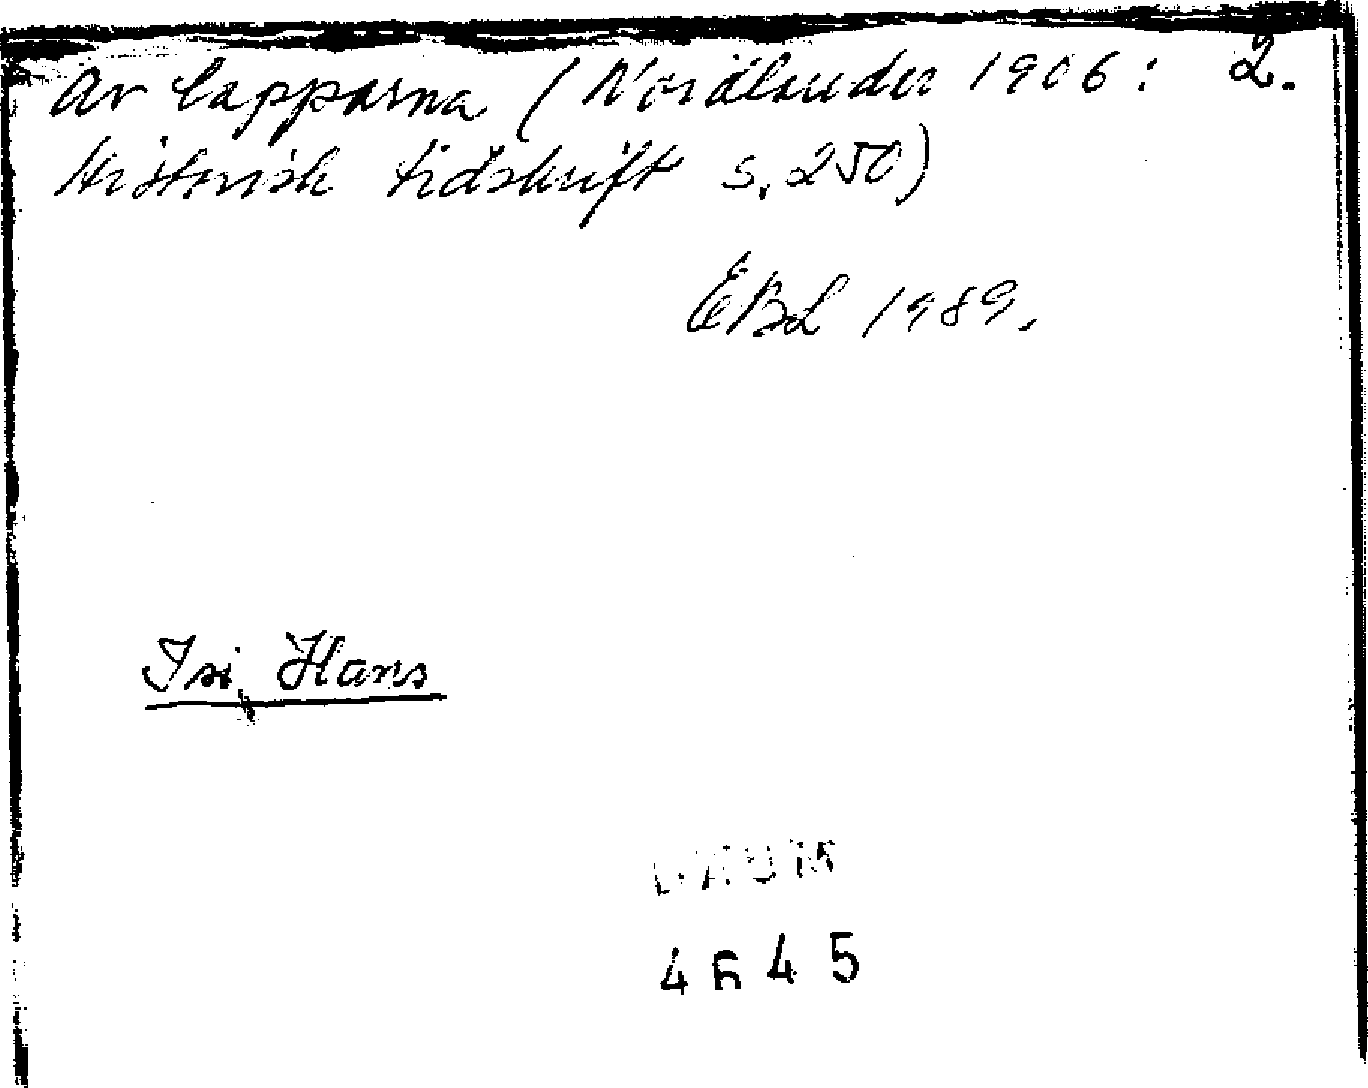 av lapparna (Nordlander 1906: 2.
Historisk tidskrift s. 250)
EBL 1989.
Isi, Hans
DAUM
4645